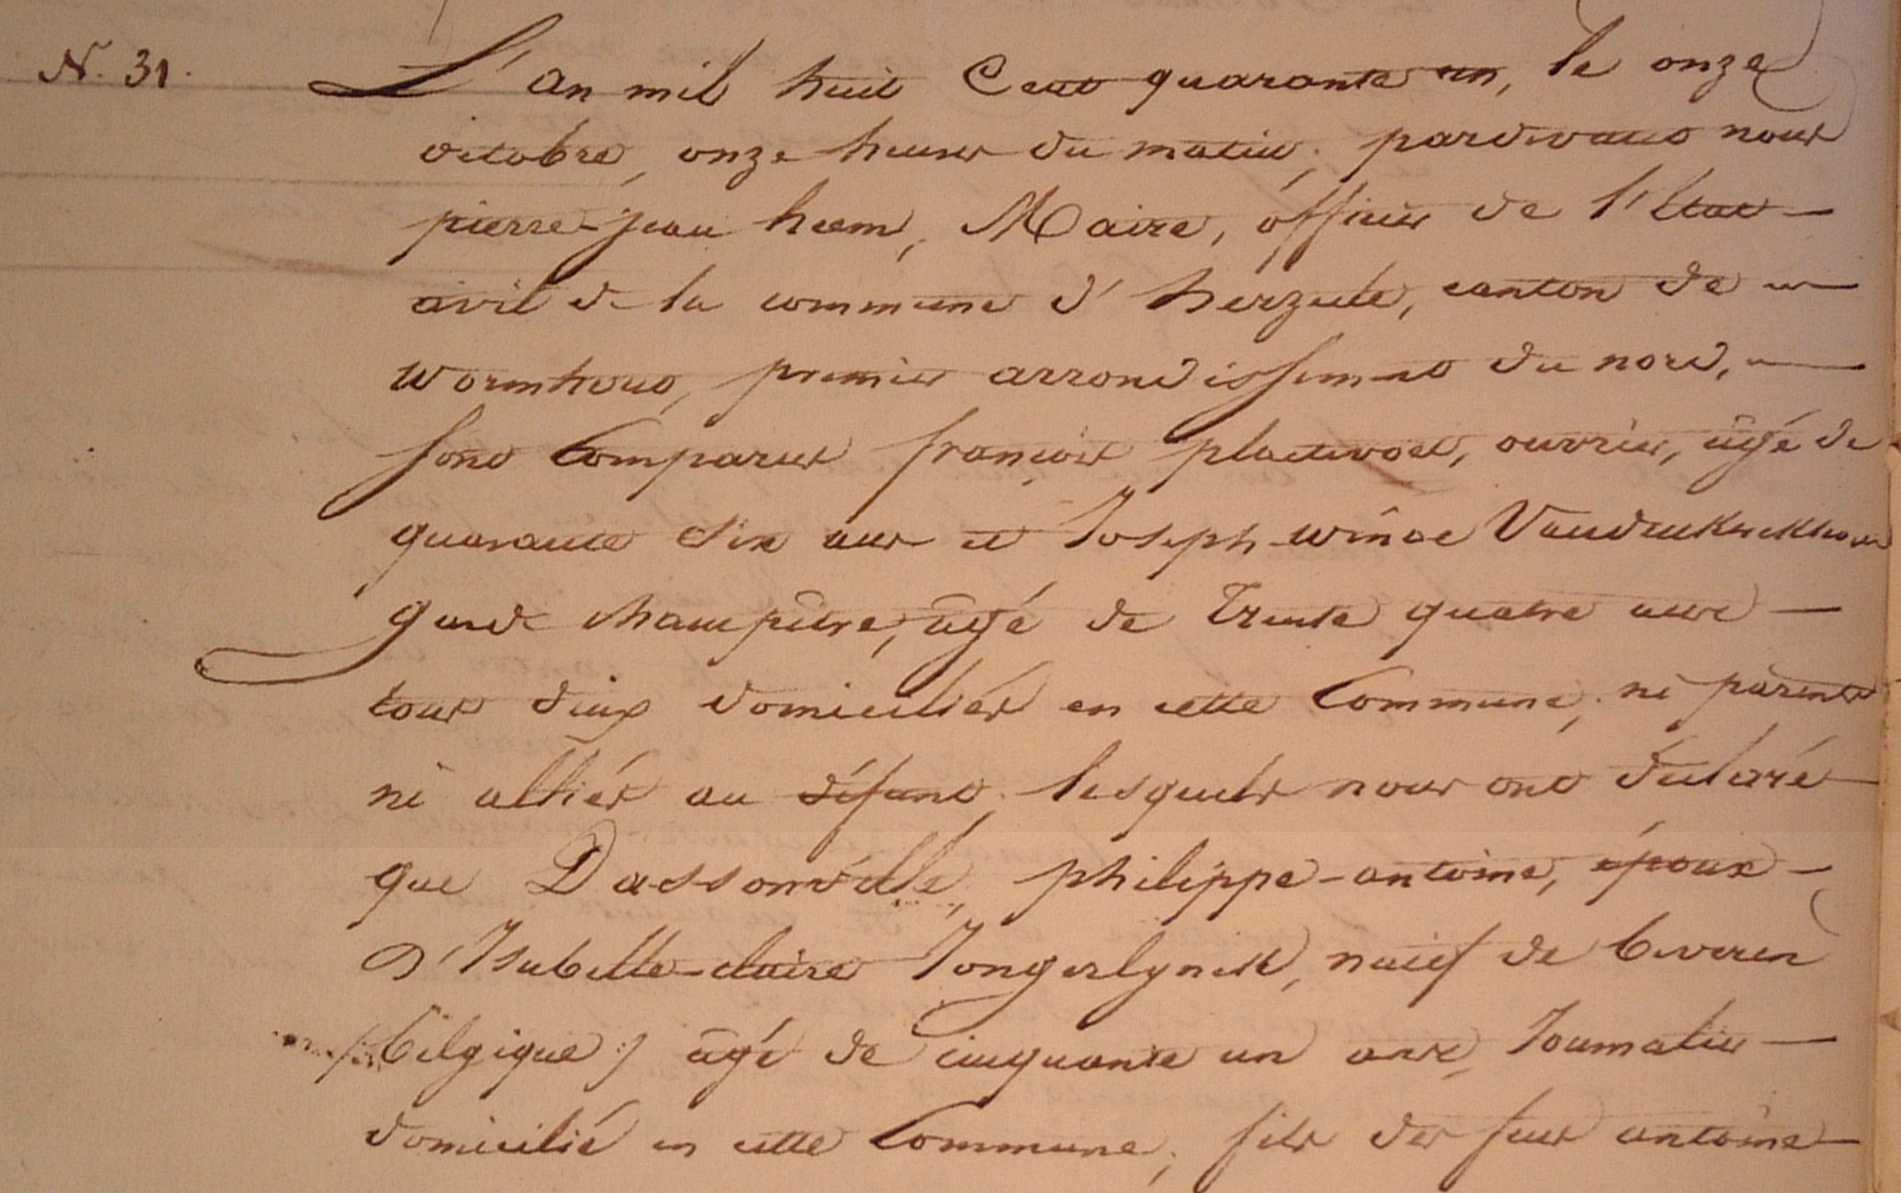 N. 31. L'an mil huit Cent quarante un, le onze
octobre, onze heures du matin, pardevant nous
pierre-jean heem, Maire, officier de l'état
civil de la commune d'herzeele, canton de
wormhout, premier arrondissement du nord,
sont Comparus françois plaetevoet, ouvrier, âgé de
quarante six ans et Joseph winoc
garde champêtre, âgé de trente quatre ans
tous deux domiciliés en cette Commune, ni parents
ni alliés au défunt, lesquels nous ont déclaré
que Dassonville, philippe-antoine, époux
d'Isabelle-claire Jongerlynck, natif de beveren
(belgique) âgé de cinquante un ans, Journalier
domicilié en cette Commune, fils des feus antoine